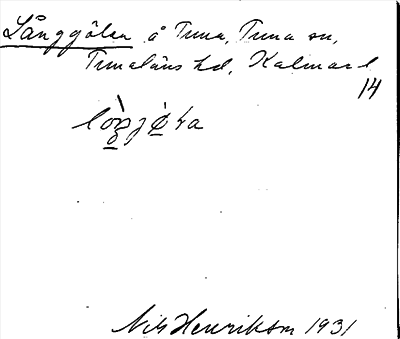 Långgölen å Tuna, Tuna sn,
Tunaläns hd, Kalmar l
14
Nils Henrikson 1931